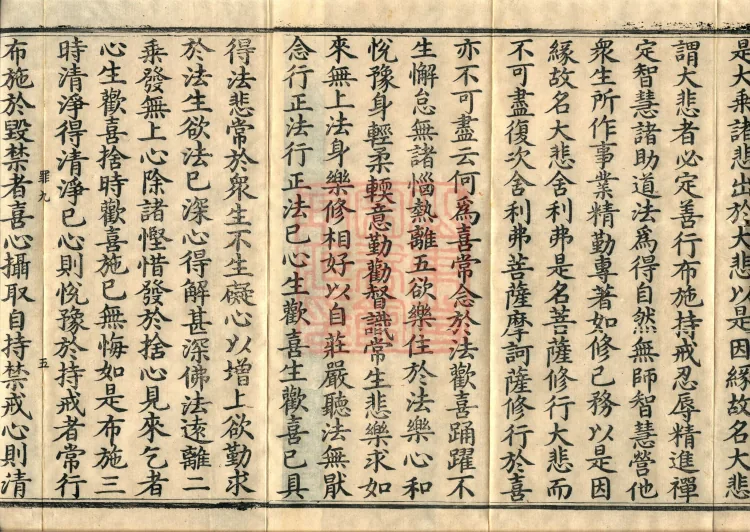 是大乘諸悲出於大悲以是因緣故名大悲
謂大悲者必定善行布施持戒忍辱精進禪
定智慧諸助道法為得自然無師智慧營他
眾生所作事業精勤專著如修己務以是因
緣故名大悲舍利弗是名菩薩修行大悲而
不可盡復次舍利弗菩薩摩訶薩修行於喜
亦不可盡云何為喜常念於法歡喜踊躍不
生懈怠無諸惱熱離五欲樂住於法樂心和
悅豫身輕柔輭意勤勸督識常生悲樂求如
來無上法身樂修相好以自莊嚴聽法無厭
念行正法行正法已心生歡喜生歡喜已具
得法悲常於眾生不生礙心以增上欲勤求
於法生欲法已深心得解甚深佛法遠離二
乘發無上心除諸慳惜發於捨心見來乞者
心生歡喜捨時歡喜施已無悔如是布施三
時清淨得清淨已心則悅豫於持戒者常行
罪九
五
布施於毀禁者喜心攝取自持禁戒心則清